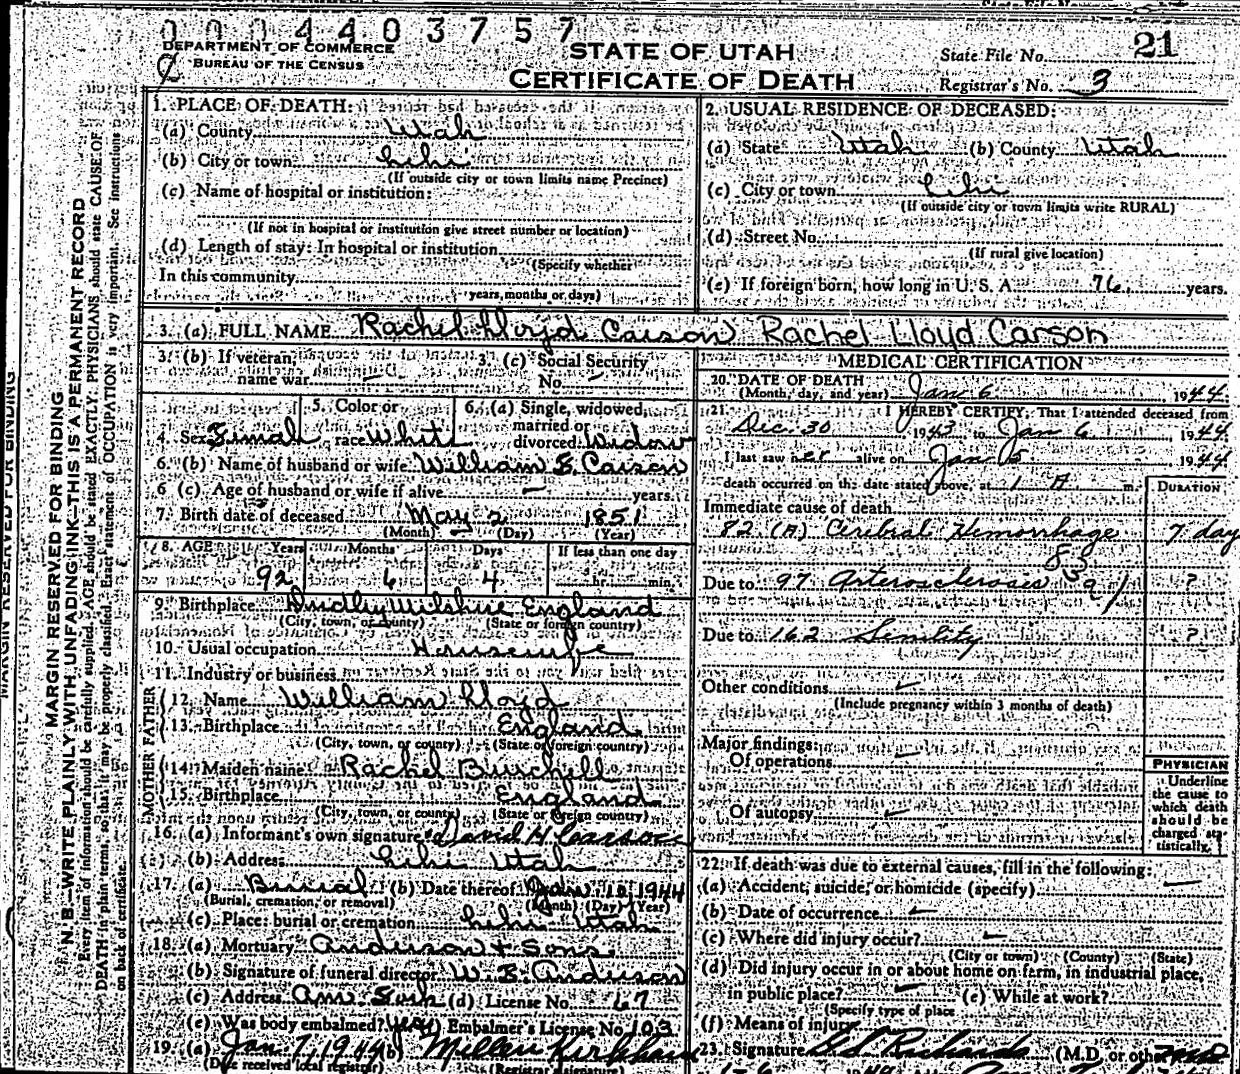 0 0 0 4 4 0 3 7 5 7
DEPARTMENT OF COMMERCE
BUREAU OF THE CENSUS
STATE OF UTAH
CERTIFICATE OF DEATH
State File No. 21
Registrar's No. 3
MARGIN RESERVED FOR BINDING
N. B.—WRITE PLAINLY WITH UNFADING INK—THIS IS A PERMANENT RECORD
Every item of information should be carefully supplied. AGE should be stated EXACTLY. PHYSICIANS should state CAUSE OF
DEATH in plain terms, so that it may be properly classified. Exact statement of OCCUPATION is very important. See instructions
on back of certificate.
1. PLACE OF DEATH:
(a) County Utah
(b) City or town Lehi
(If outside city or town limits name Precinct)
(c) Name of hospital or institution:
(If not in hospital or institution give street number or location)
(d) Length of stay: In hospital or institution
(Specify whether
In this community
years, months or days)
2. USUAL RESIDENCE OF DECEASED:
(a) State Utah (b) County Utah
(c) City or town Lehi
(If outside city or town limits write RURAL)
(d) Street No.
(If rural give location)
(e) If foreign born, how long in U. S. A. 76 years.
3. (a) FULL NAME Rachel Lloyd Carson Rachel Lloyd Carson
3. (b) If veteran, name war —
3. (c) Social Security No. —
4. Sex Female
5. Color or race White
6. (a) Single, widowed, married or divorced Widow
6. (b) Name of husband or wife William F. Carson
6 (c). Age of husband or wife if alive — years.
7. Birth date of deceased May 2 1851
(Month) (Day) (Year)
8. AGE Years Months Days If less than one day
92 6 4 hr. min.
9. Birthplace Wilshire England
(City, town, or county) (State or foreign country)
10. Usual occupation Housewife
11. Industry or business
FATHER
12. Name William Lloyd
13. Birthplace England
(City, town, or county) (State or foreign country)
MOTHER
14. Maiden name Rachel Burchell
15. Birthplace England
(City, town, or county) (State or foreign country)
16. (a) Informant's own signature David H Carson
(b) Address Lehi Utah
17. (a) Burial (b) Date thereof Jan. 10 1944
(Burial, cremation, or removal) (Month) (Day) (Year)
(c) Place: burial or cremation Lehi Utah
18. (a) Mortuary Anderson & Sons
(b) Signature of funeral director W. E. Anderson
(c) Address Am. Fork (d) License No. 67
(e) Was body embalmed? yes Embalmer's License No. 103
19. (a) Jan 7, 1944 (b) Millen Kirkham
(Date received local registrar) (Registrar's signature)
MEDICAL CERTIFICATION
20. DATE OF DEATH
(Month, day, and year) Jan 6, 1944.
21. I HEREBY CERTIFY, That I attended deceased from
Dec. 30, 1943 to Jan 6, 1944.
I last saw her alive on Jan 5 1944
death occurred on the date stated above, at 1 A m. DURATION
Immediate cause of death
82 (A) Cerebral Hemorrhage 7 day
Due to 97 Arterosclerosis ?
Due to 162 Senility ?
Other conditions
(Include pregnancy within 3 months of death)
Major findings:
Of operations
Of autopsy
PHYSICIAN
Underline
the cause to
which death
should be
charged sta-
tistically.
22. If death was due to external causes, fill in the following:
(a) Accident, suicide, or homicide (specify) —
(b) Date of occurrence
(c) Where did injury occur?
(City or town) (County) (State)
(d) Did injury occur in or about home on farm, in industrial place,
in public place? (e) While at work?
(Specify type of place
(f) Means of injury
23. Signature G S Richards (M.D. or other